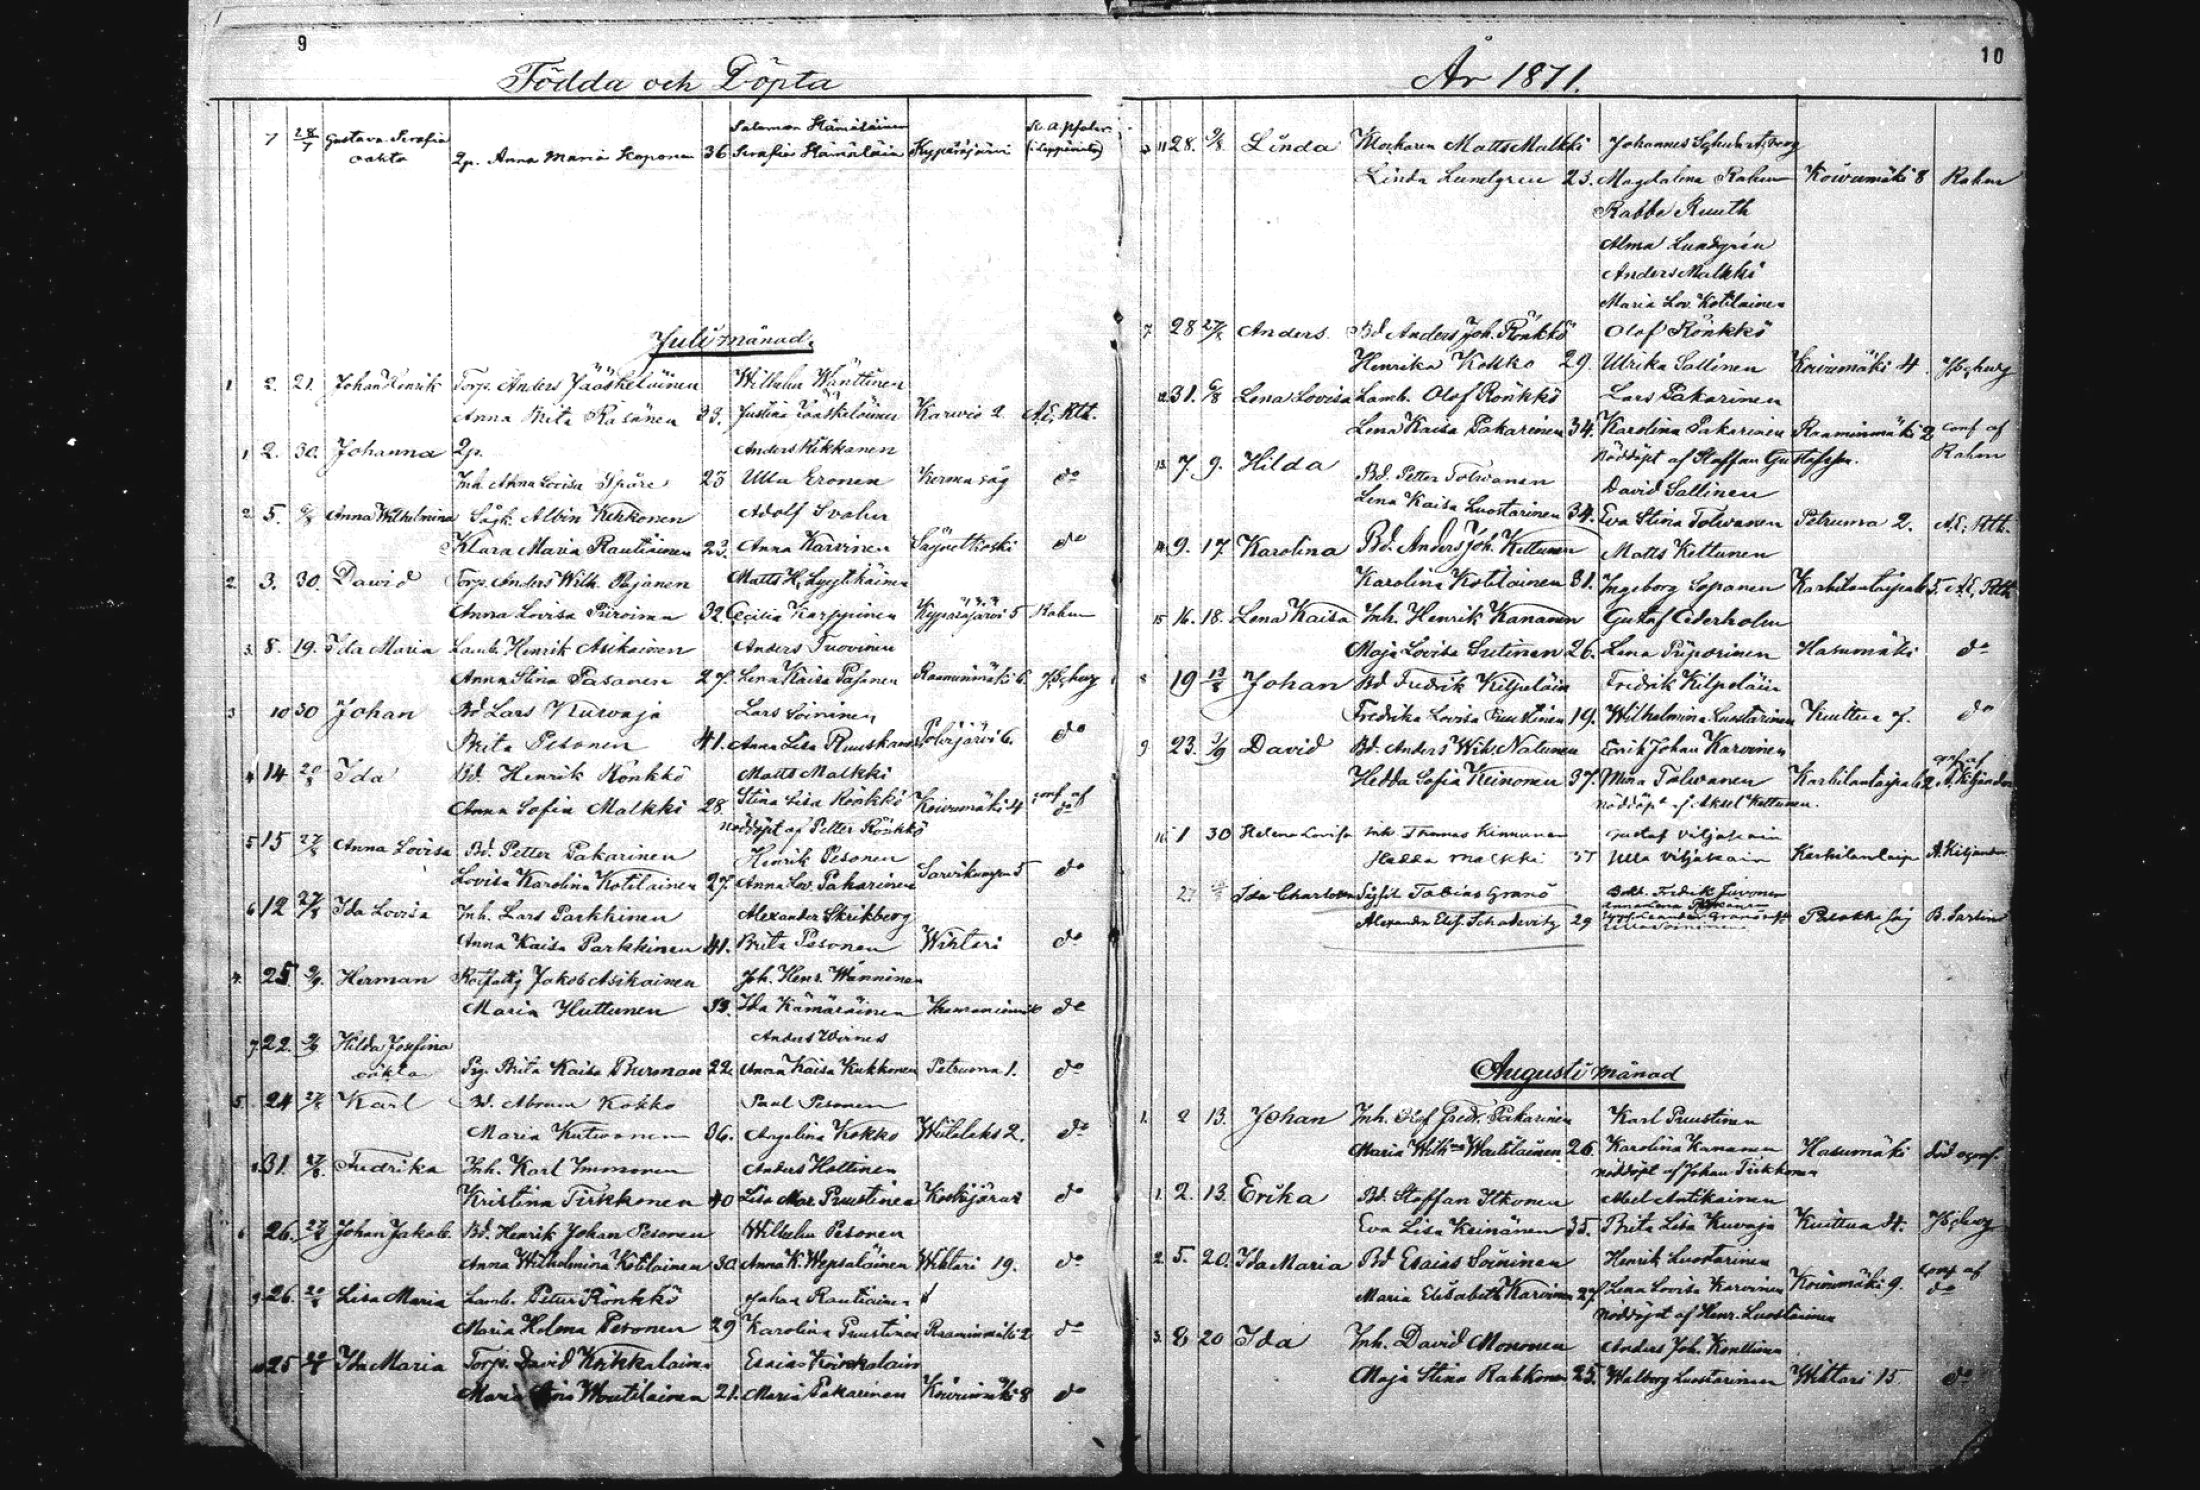 9
Födda och Döpta
7 28/7 Gustava Serafia Salomon Hämäläinen
oäkta Anna Maria Koponen 36 Serafia Hämäläin Kypäräjärvi
Juli månad.
1 2. 21. Johan Henrik Torp. Anders Jääskeläinen Wilhelm Wänttinen
Anna Brita Räsänen 33. Justina Jääskeläinen Karwio 2. A.E. Rth.
1 2. 30. Johanna Anders Kikkanen
Inh. Anna Lovisa Späre 23 Ulla Eronen Kerma såg do
2. 5. 6/8 Anna Wilhelmina Sågk. Albin Kekkonen Adolf Svahn
Klara Maria Rautiainen 23. Anna Karvinen do
2. 3. 30. David Torp. Anders Wilh. Pajanen Matts H. Lyytikäinen
Anna Lovisa Piiroinen 32. Cecilia Karppinen Kypäräjärvi 5 Rahm
3. 8. 19. Ida Maria Lamb. Henrik Asikainen Anders Tuovinen
Anna Stina Pasanen 27. Lena Kaisa Pasanen Raaminmäki 6.
3 10 30 Johan Bd Lars Kurvaja Lars Soininen
Brita Pesonen 41. Anna Lisa Ruuskanen Polvijärvi 6. do
4 14 20/8 Ida Bd. Henrik Rönkkö Matts Malkki
Anna Sofia Malkki 28. Stina Lisa Rönkkö Koivumäki 4 conf af do
nöddöpt af Petter Rönkkö
5 15 27/8 Anna Lovisa Bd. Petter Pakarinen Henrik Pesonen
Lovisa Karolina Kotilainen 27. Anna Lov. Pakarinen Sarvikumpu 5 do
6 12 27/8 Ida Lovisa Inh. Lars Parkkinen Alexander Skrikberg
Anna Kaisa Parkkinen 41. Brita Pesonen Wihtari do
25 Herman Jakob Asikainen Joh. Henr. Wänninen
Maria Huttunen 33. Ida Kämäräinen do
7. 22. Hilda Josefina Anders Wirnes
oäkta Pig. Brita Kaisa Burman 22. Anna Kaisa Kukkonen Petruma 1. do
5. 24 27/8 Karl Bd. Abram Kokko Paul Pesonen
Maria Kutvonen 36. Angelina Kokko Wiitalaks 2. do
31. 27/8 Fredrika Inh. Karl Immonen Anders Hottinen
Kristina Tirkkonen 40 Lisa Mar. Puustinen Koskijärvi do
6 26. 27/8 Johan Jakob Bd. Henrik Johan Pesonen Wilhelm Pesonen
Anna Wilhelmina Kotilainen 30 Anna K. Wepsäläinen Wihtari 19. do
9. 26. 20/8 Lisa Maria Lamb. Petter Rönkkö Johan Rautiainen
Maria Helena Pesonen 29 Karolina Puustinen Raaminmäki 2 do
25 Ida Maria Torp. David Kinkkalainen Esaias Kinkkalain
Maria Woutilainen 21. Maria Pakarinen Koivumäki 8 do
10
År 1871.
11 28. 9/8. Linda Klockaren Matts Malkki Johannes Schwartzberg
Linda Lundgren 23. Magdalena Rahm Koivumäki 8 Rahm
Rabbe Ruuth
Alma Lundgren
Anders Malkki
Maria Lov. Kotilainen
7 28 27/8 Anders Bd Anders Joh. Rönkkö Olof Rönkkö
Henrika Kokko 29. Ulrika Sallinen Koivumäki 4.
12. 31. 6/8 Lena Lovisa Lamb. Olof Rönkkö Lars Pakarinen
Lena Kaisa Pakarinen 34. Karolina Pakarinen Raaminmäki 2 conf af
nöddöpt af Staffan Gustafsson. Rahm
13. 7. 9. Hilda Bd. Petter Tolvanen David Sallinen
Lena Kaisa Luostarinen 34. Eva Stina Tolvanen Petruma 2. A.E. Rth.
14. 9. 17. Karolina Bd. Anders Joh. Kettunen Matts Kettunen
Karolina Kotilainen 31. Ingeborg Sopanen Karhilantaipale 5. A.E. Rth
15 16. 18. Lena Kaisa Inh. Henrik Kananen Gustaf Cederholm
Maja Lovisa Sutinen 26. Lena Piiparinen Hasumäki do
8 19 13/8 Johan Bd Fredrik Kilpeläin Fredrik Kilpeläin
Fredrika Lovisa Puustinen 19. Wilhelmina Luostarinen Kuittua 7. do
9 23. 3/9 David Bd. Anders Wilh. Natunen Henrik Johan Karvinen
Hedda Sofia Keinonen 37. Mina Tolvanen Karhilantaipale 2 conf af A. Kiljander
nöddöpt af Aksel Kettunen.
16 1 30 Helena Lovisa Inh. Thomas Kinnunen Gustaf Viljakain
Hedda Malkki 37 Ulla Viljakain Karhilantaip A. Kiljander
27 Ida Charlotta Tobias Granö Fredrik Juvonen
Alexandra Elis. Schadevitz 29 Palokki såg
Augusti månad
1. 2 13. Johan Inh. Olof Fredr. Pakarinen Karl Puustinen
Maria Wilhna Woutilainen 26. Karolina Kananen Hasumäki
nöddöpt af Johan Tirkkonen
1. 2. 13. Erika Bd. Staffan Itkonen Abel Antikainen
Eva Lisa Keinänen 35. Brita Lisa Kuvaja Kuittua 34.
2. 5. 20. Ida Maria Bd Esaias Soininen Henrik Luostarinen
Maria Elisabeth Karvinen 27 Lena Lovisa Karvinen Koivumäki 9. conf af do
nöddöpt af Henr. Luostarinen
3. 8 20 Ida Inh. David Mononen Anders Joh. Konttinen
Maja Stina Rahkonen 25. Walborg Luostarinen Wihtari 15 do